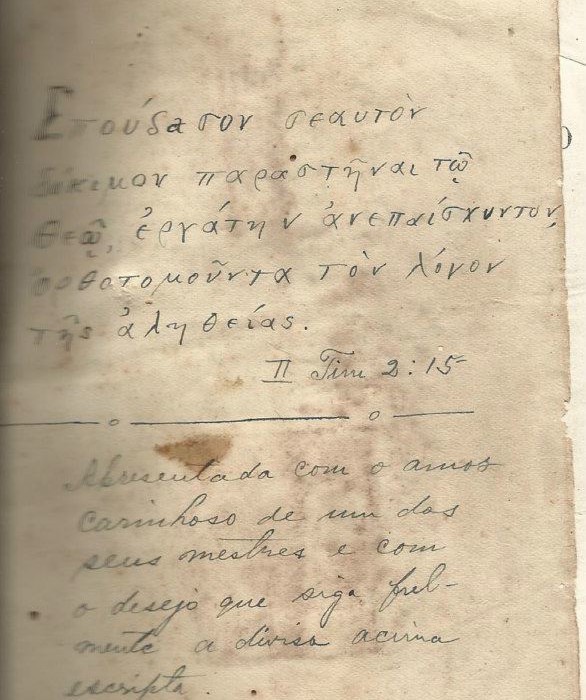 Σπούδασον σεαυτὸν
δόκιμον παραστῆναι τῷ
θεῷ, ἐργάτην ἀνεπαίσχυντον,
ὀρθοτομοῦντα τὸν λόγον
τῆς ἀληθείας.
II Tim 2:15
Apresentada com o amor
carinhoso de um dos
seus mestres e com
o desejo que siga fiel-
mente a divisa acima
escripta.